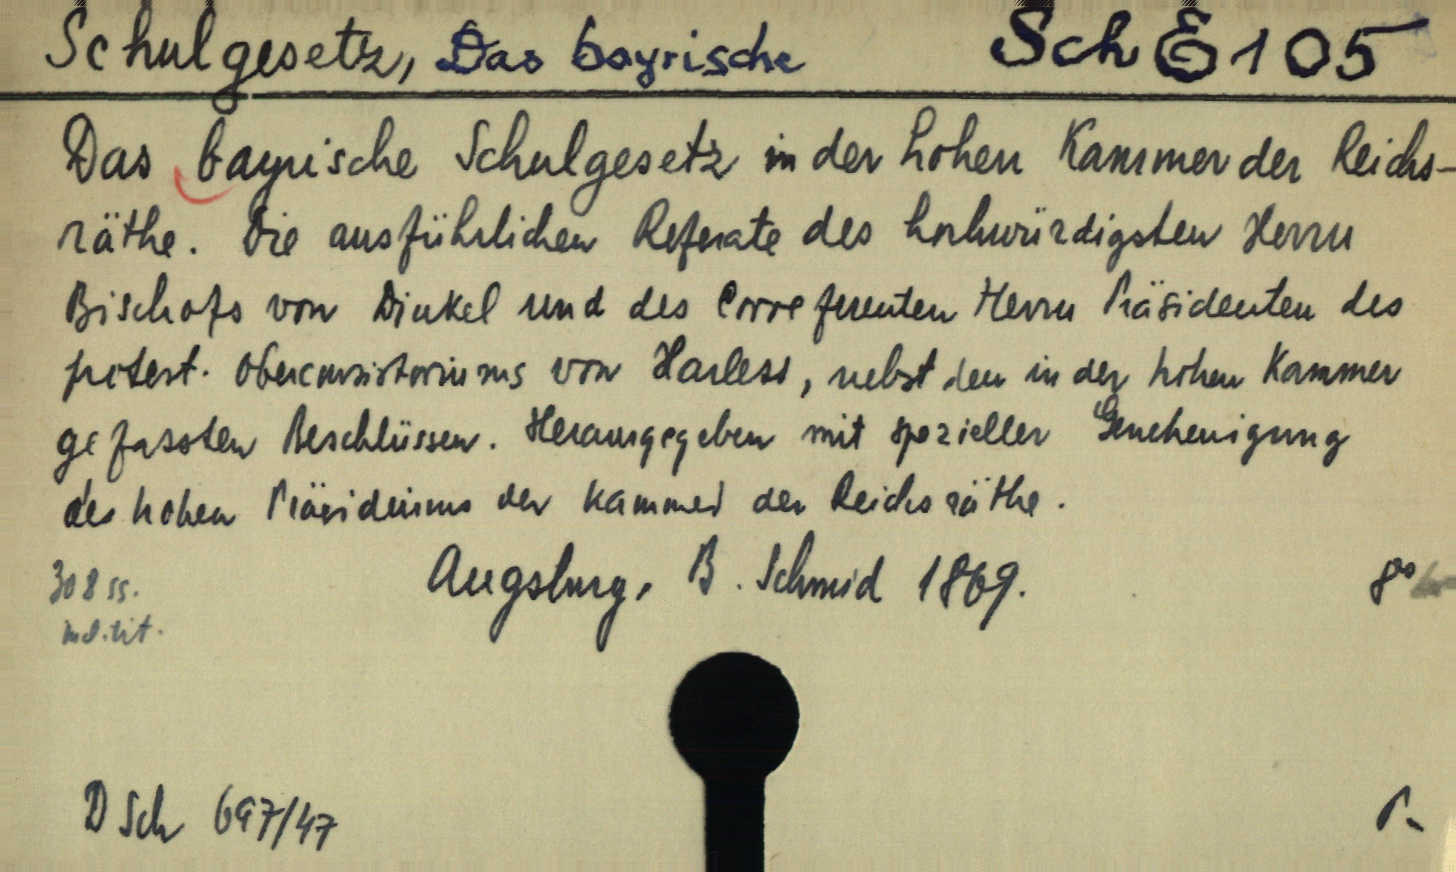 Schulgesetz, Das bayrische Sch E 105
Das bayrische Schulgesetz in der hohen Kammer der Reichs-
räthe. Die ausführlichen Referate des hochwürdigsten Herrn
Bischofs von Dinkel und des Correferenten Herrn Präsidenten des
protest. Oberconsistoriums von Harless, nebst den in der hohen Kammer
gefassten Beschlüssen. Herausgegeben mit spezieller Genehmigung
des hohen Präsidiums der Kammer der Reichsräthe.
Augsburg, B. Schmid 1869. 8°
308 ss.
ind. tit.
D Sch 697/47